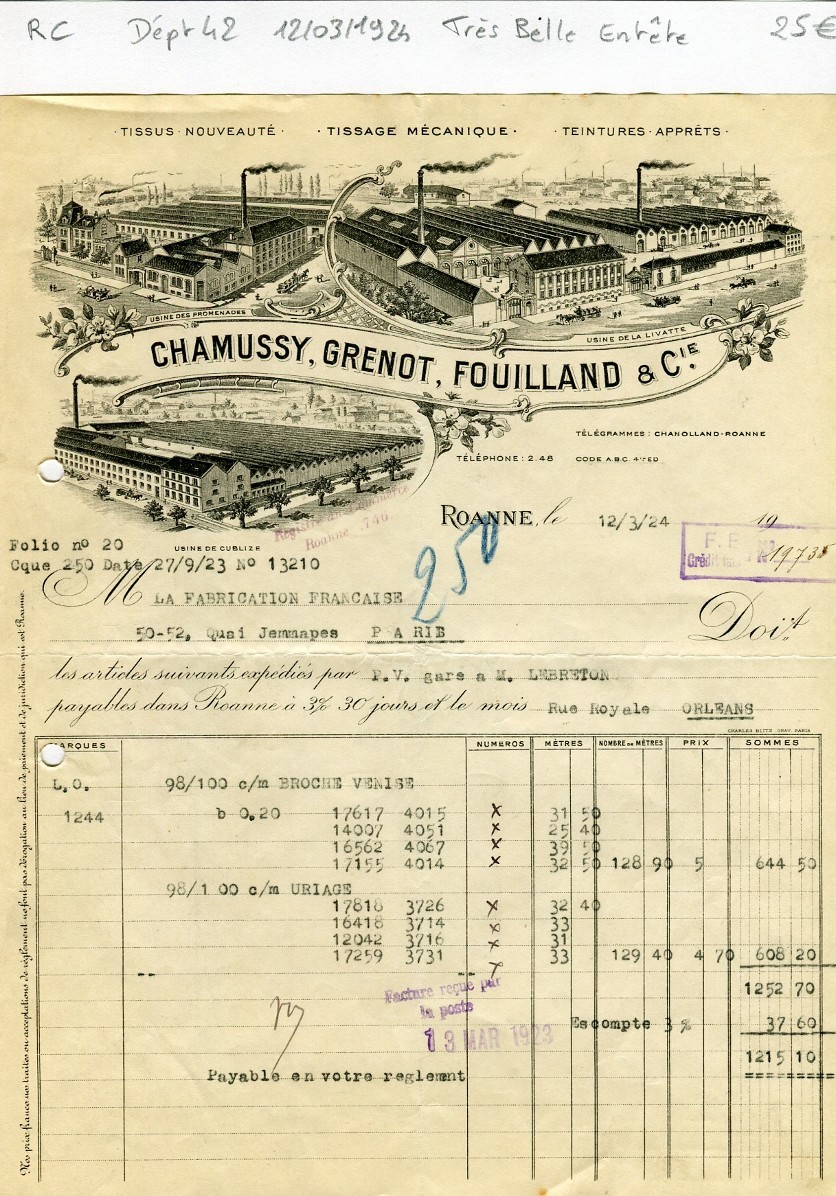 RC Dépt 42 12/03/1924 Très Belle Entête 25€
· TISSUS · NOUVEAUTÉ · · TISSAGE MÉCANIQUE · · TEINTURES · APPRÊTS ·
USINE DES PROMENADES
USINE DE LA LIVATTE
CHAMUSSY, GRENOT, FOUILLAND & CIE
TÉLÉGRAMMES : CHANOLLAND-ROANNE
TÉLÉPHONE : 2.48 CODE A.B.C. 4e ED
Registre du Commerce
Roanne 746
ROANNE, le 12/3/24 19
USINE DE CUBLIZE
Folio nº 20
Cque 250 Daté 27/9/23 Nº 13210
250
F. F. Nº
Crédit 19735
M LA FABRICATION FRANCAISE
50-52, Quai Jemmapes PARIE
Doit
les articles suivants expédiés par P.V. gare a M. LEBRETON
payables dans Roanne à 3% 30 jours et le mois Rue Royale ORLEANS
CHARLES BLITZ, GRAV. PARIS
MARQUES NUMEROS MÈTRES NOMBRE DE MÈTRES PRIX SOMMES
L.O. 98/100 c/m BROCHE VENISE
1244 b 0.20 17617 4015 x 31 50
14007 4051 x 25 40
16562 4067 x 39 50
17155 4014 x 32 50 128 90 5 644 50
98/1 00 c/m URIAGE
17818 3726 x 32 40
16418 3714 x 33
12042 3716 x 31
17259 3731 x 33 129 40 4 70 608 20
-- --
1252 70
Facture reçue par
la poste
13 MAR 1923
Escompte 3 % 37 60
1215 10
Payable en votre reglement
Nos prix francs nos traites ou acceptations de règlement ne font pas dérogation au lieu de paiement et de juridiction qui est Roanne.